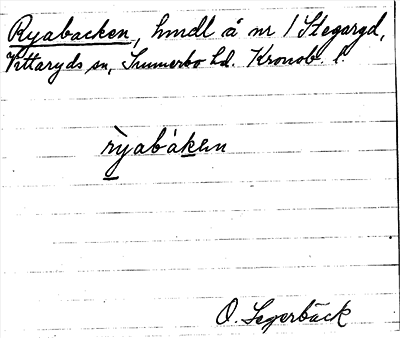 Ryabacken, hmdl å nr 1 Stegargd,
Vittaryds sn, Sunnerbo hd. Kronob. l.
ryabàken
O. Segerbäck